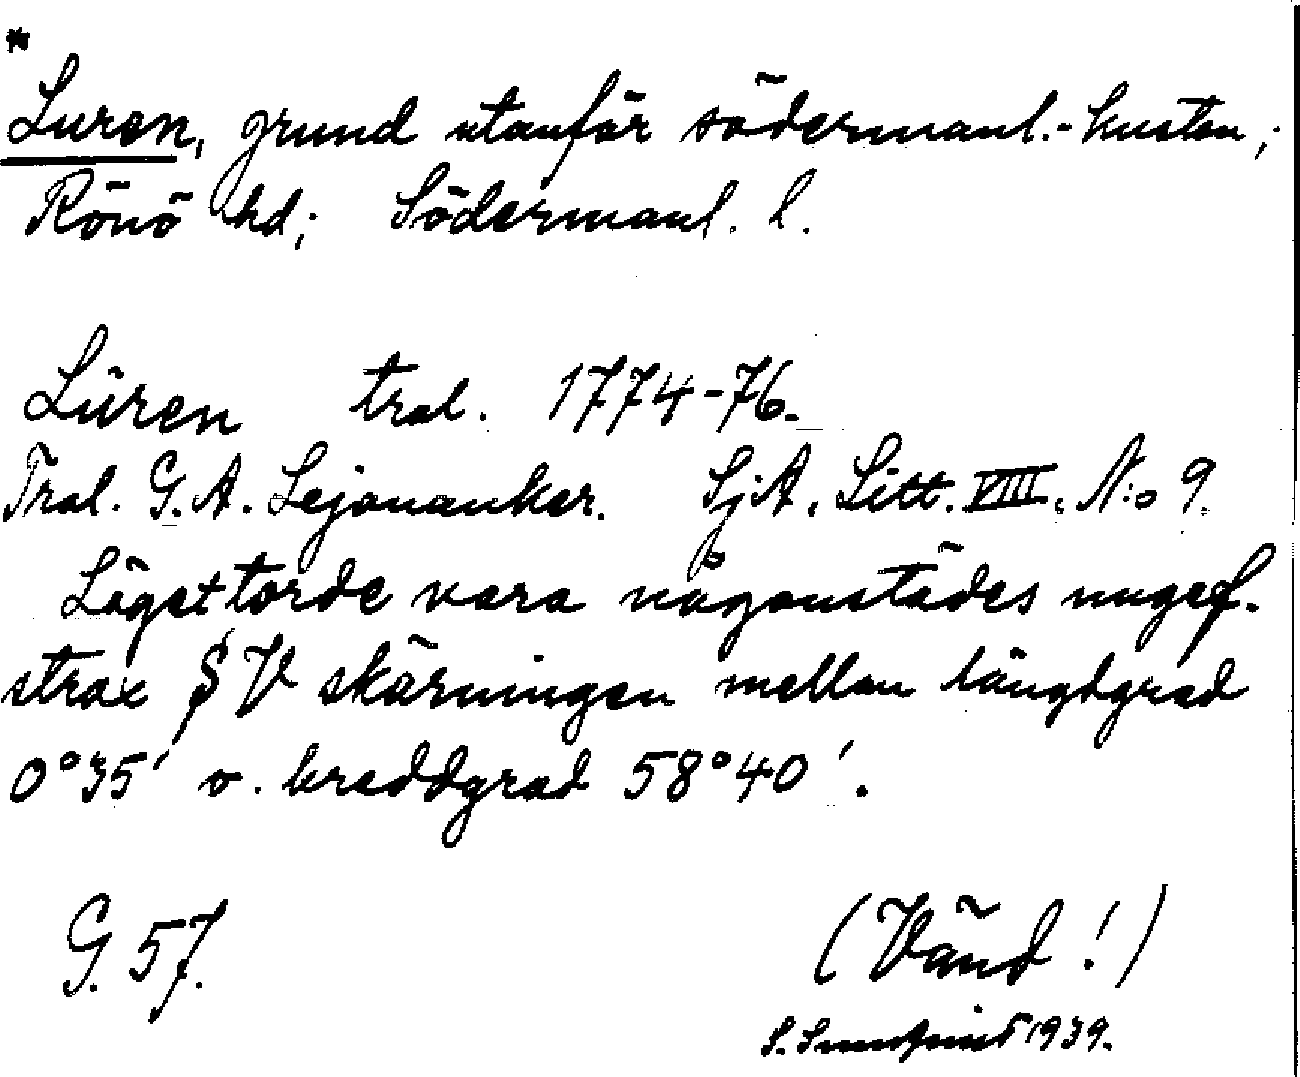 *
Luren, grund utanför södermanl.-kusten;
Rönö hd; Södermanl. l.
Lüren tral. 1774-76.
Tral. G. A. Lejonanker. SjA. Litt. VIII. N:o 9.
Läget torde vara någonstädes ungef.
strax S V skärningen mellan längdgrad
0°35' o. breddgrad 58°40'.
G. 57.
(Vänd!)
S. Sundqvist 1939.